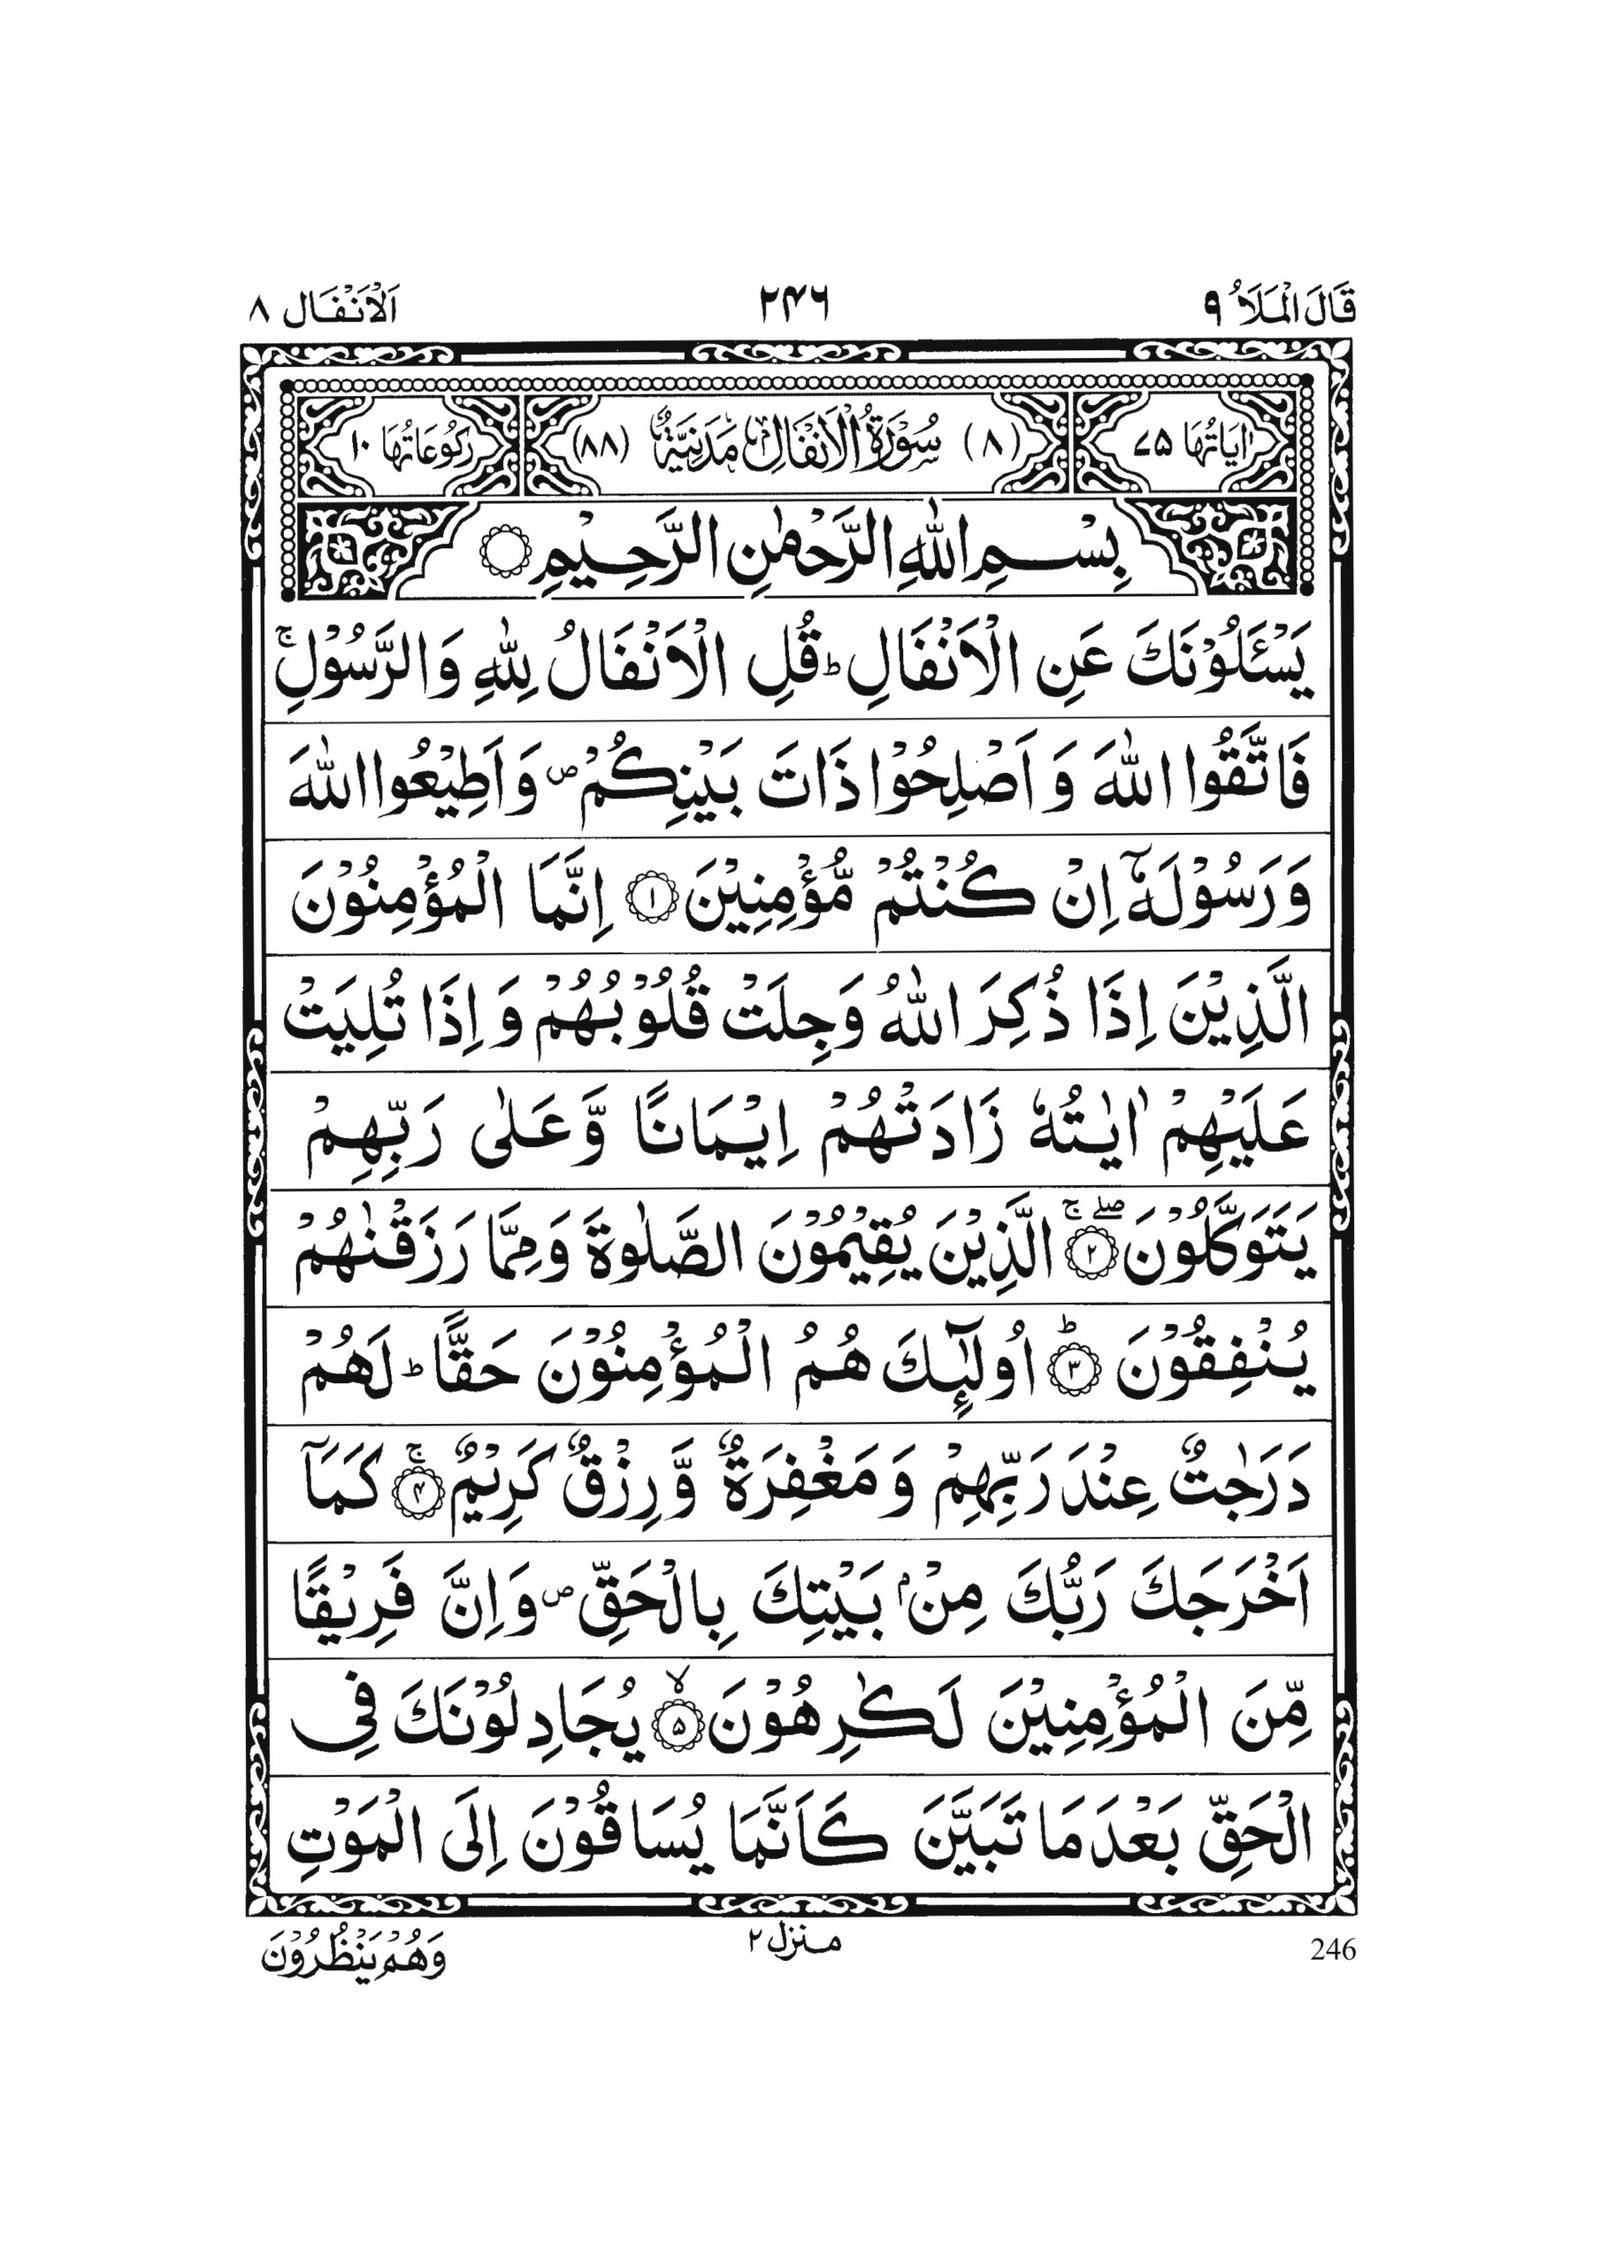 قَالَ الْمَلَاُ ۹ ۲۴۶ اَلْاَنْفَال ۸
اٰيَاتُهَا ۷۵ (۸) سُوْرَةُ الْاَنْفَالِ مَدَنِيَّةٌ (۸۸) رُكُوْعَاتُهَا ۱۰
بِسْمِ اللّٰهِ الرَّحْمٰنِ الرَّحِيْمِ ۝
يَسْـَٔلُوْنَكَ عَنِ الْاَنْفَالِ ؕ قُلِ الْاَنْفَالُ لِلّٰهِ وَالرَّسُوْلِ ۚ
فَاتَّقُوا اللّٰهَ وَ اَصْلِحُوْا ذَاتَ بَيْنِكُمْ ۪ وَ اَطِيْعُوا اللّٰهَ
وَ رَسُوْلَهٗۤ اِنْ كُنْتُمْ مُّؤْمِنِيْنَ ۝۱ اِنَّمَا الْمُؤْمِنُوْنَ
الَّذِيْنَ اِذَا ذُكِرَ اللّٰهُ وَجِلَتْ قُلُوْبُهُمْ وَ اِذَا تُلِيَتْ
عَلَيْهِمْ اٰيٰتُهٗ زَادَتْهُمْ اِيْمَانًا وَّ عَلٰى رَبِّهِمْ
يَتَوَكَّلُوْنَ ۝۲ۖۚ الَّذِيْنَ يُقِيْمُوْنَ الصَّلٰوةَ وَ مِمَّا رَزَقْنٰهُمْ
يُنْفِقُوْنَ ۝۳ؕ اُولٰٓئِكَ هُمُ الْمُؤْمِنُوْنَ حَقًّا ؕ لَهُمْ
دَرَجٰتٌ عِنْدَ رَبِّهِمْ وَ مَغْفِرَةٌ وَّ رِزْقٌ كَرِيْمٌ ۝۴ۚ كَمَاۤ
اَخْرَجَكَ رَبُّكَ مِنْۢ بَيْتِكَ بِالْحَقِّ ۪ وَ اِنَّ فَرِيْقًا
مِّنَ الْمُؤْمِنِيْنَ لَكٰرِهُوْنَ ۝۵ۙ يُجَادِلُوْنَكَ فِى
الْحَقِّ بَعْدَ مَا تَبَيَّنَ كَاَنَّمَا يُسَاقُوْنَ اِلَى الْمَوْتِ
246 منزل ۲ وَهُمْ يَنْظُرُوْنَ